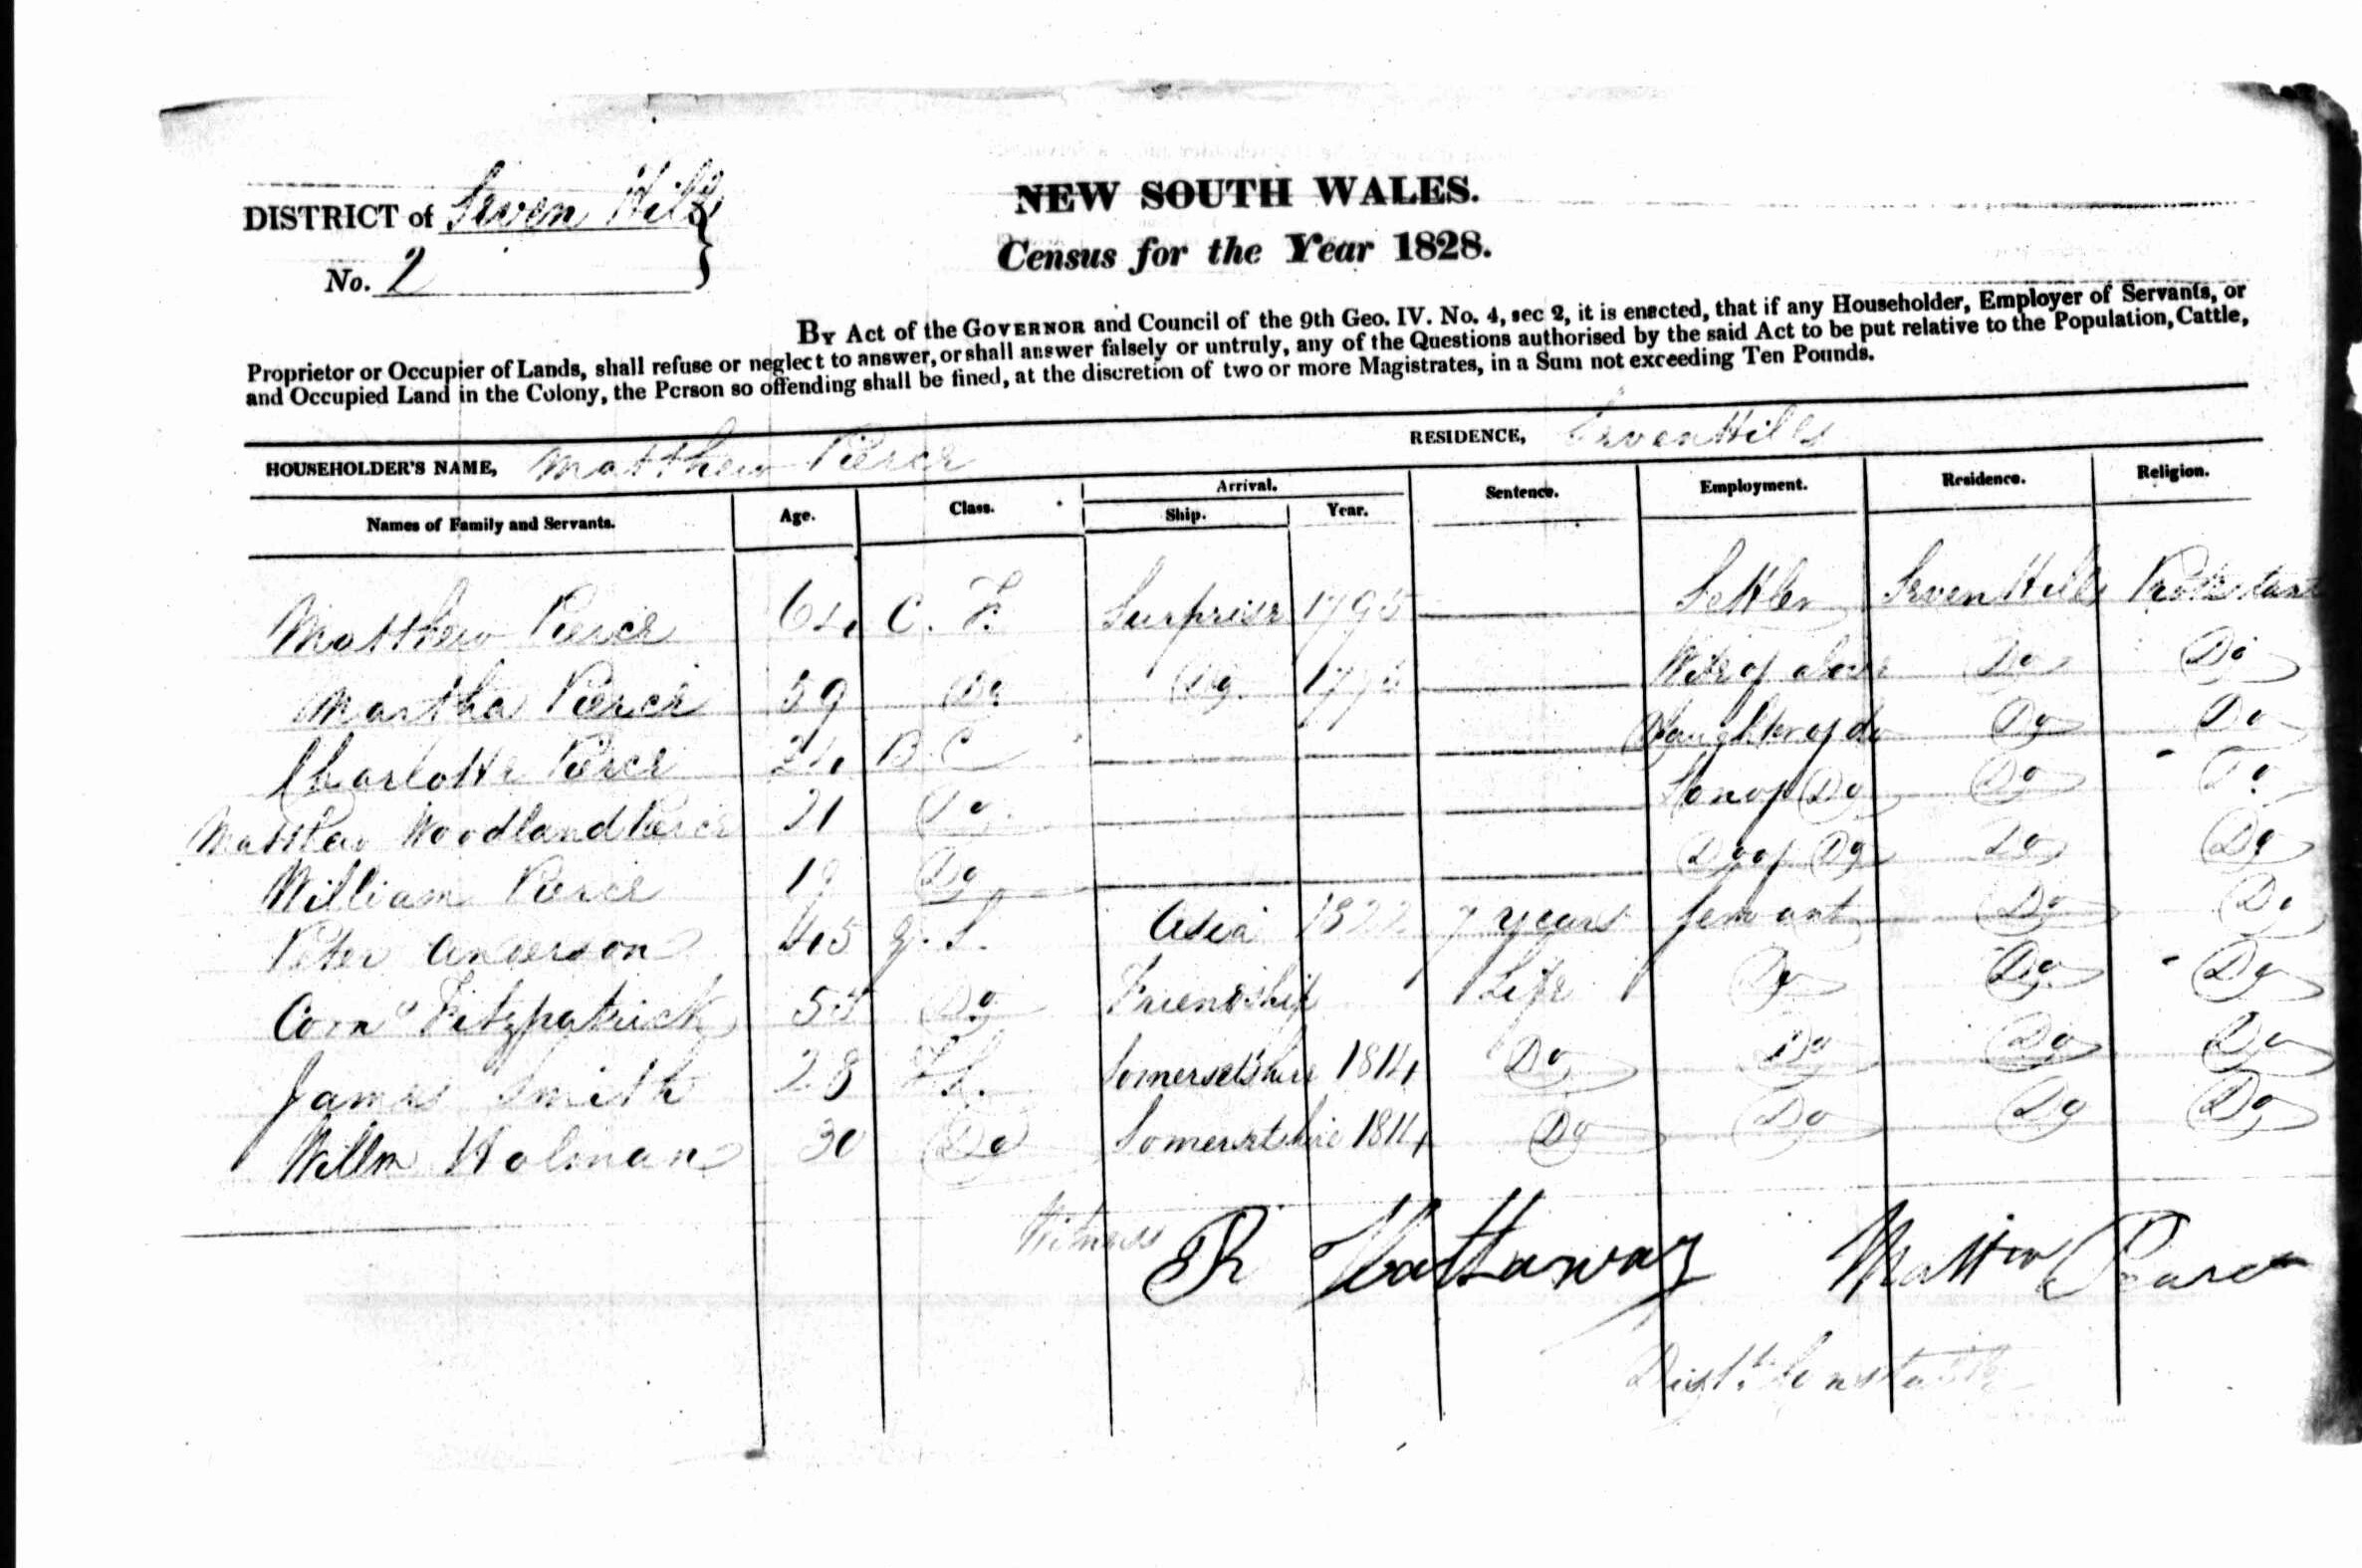 DISTRICT of Seven Hills
No. 2
NEW SOUTH WALES.
Census for the Year 1828.
By Act of the GOVERNOR and Council of the 9th Geo. IV. No. 4, sec 2, it is enacted, that if any Householder, Employer of Servants, or
Proprietor or Occupier of Lands, shall refuse or neglect to answer, or shall answer falsely or untruly, any of the Questions authorised by the said Act to be put relative to the Population, Cattle,
and Occupied Land in the Colony, the Person so offending shall be fined, at the discretion of two or more Magistrates, in a Sum not exceeding Ten Pounds.
HOUSEHOLDER'S NAME, Matthew Pierce RESIDENCE, Seven Hills
Names of Family and Servants. Age. Class. Arrival. Ship. Year. Sentence. Employment. Residence. Religion.
Matthew Pierce 64 C. F. Surprise 1795 Settler Seven Hills Protestant
Martha Pierce 59 Do Do. 1795 Wife of above Do Do
Charlotte Pierce 24 B. C Daughter of do Do Do
Matthew Woodland Pierce 21 Do Son of Do Do Do
William Pierce 19 Do Do of Do Do Do
Peter Anderson 45 G. S. Asia 1822 7 years Servant Do Do
Corns Fitzpatrick 55 Do Friendship Life Do Do Do
James Smith 28 T. L. Somersetshire 1814 Do Do Do Do
Willm Holman 30 Do Somersetshire 1814 Do Do Do Do
Witness
R Hathaway Matthew Pearce
Distt. Constable